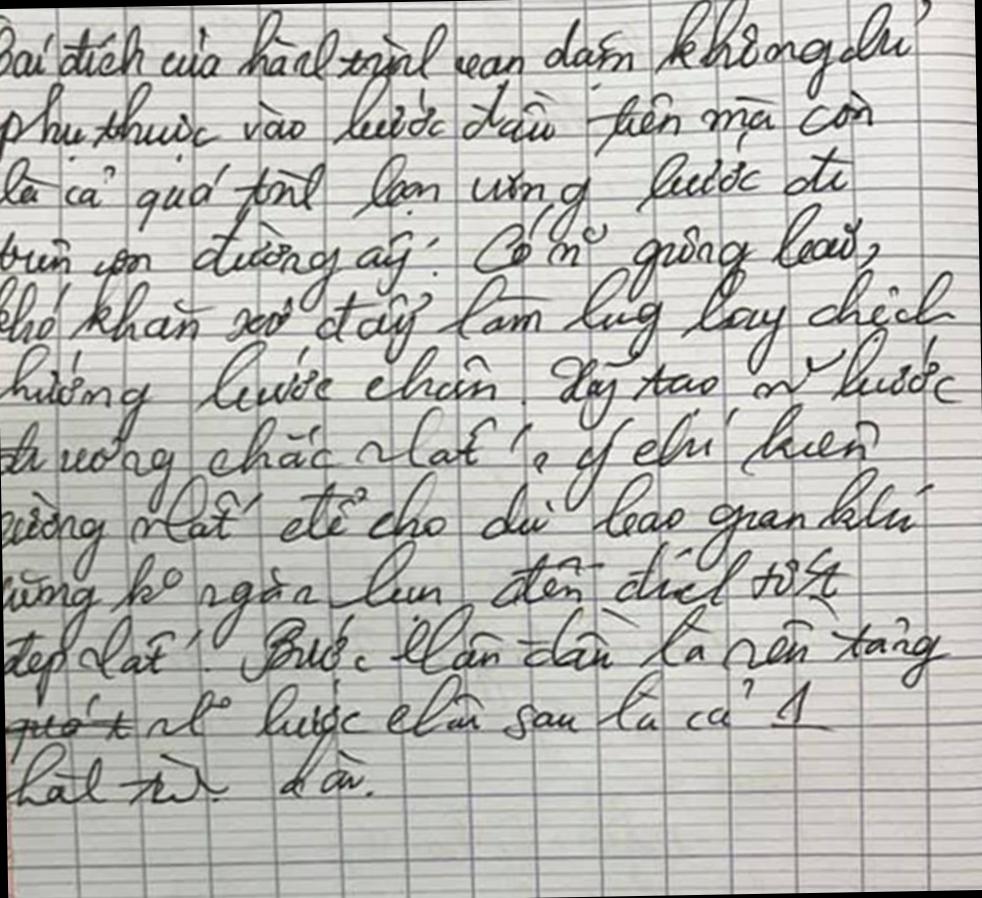 Cái đích của hành trình vạn dặm không chỉ
phụ thuộc vào bước đầu tiên mà còn
là cả quá trình bạn vững bước đi
trên con đường ấy. Có n~ giông bão,
khó khăn xô đẩy làm lung lay chệch
hướng bước chân. Hãy tạo n~ bước
đi vững chắc nhất, ý chí kiên
cường nhất để cho dù bao gian khó
cũng ko ngăn bạn đến đích tốt
đẹp nhất. Bước chân đầu là nền tảng
n~ bước chân sau là cả 1
hành trình dài.